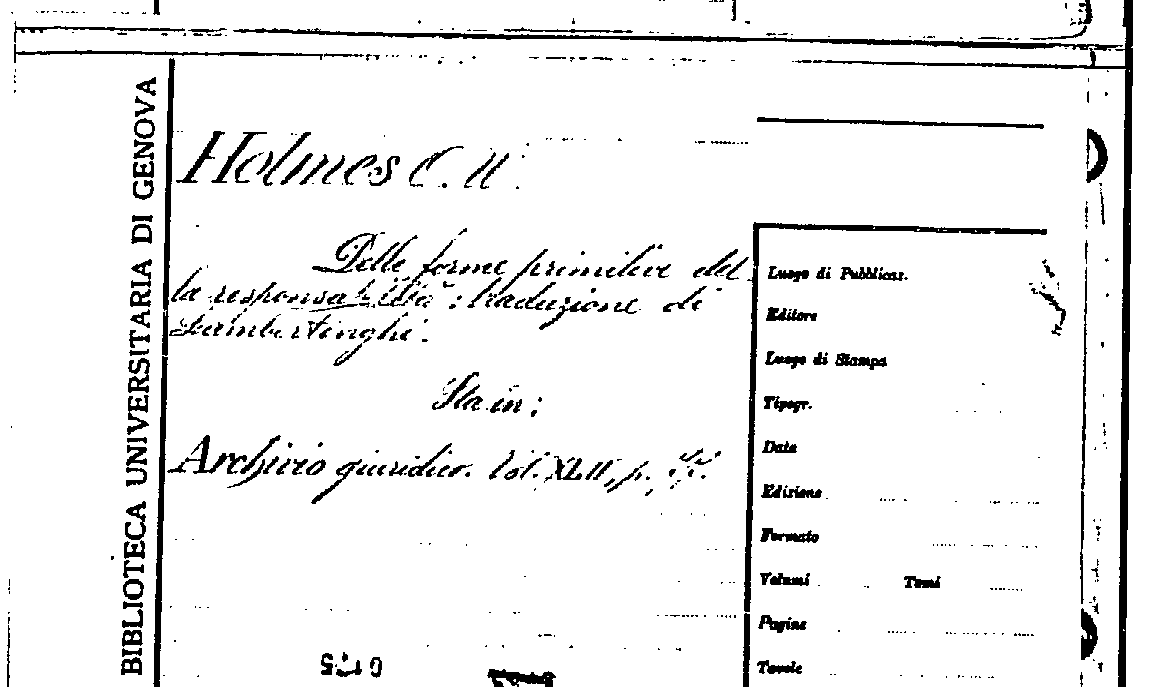 BIBLIOTECA UNIVERSITARIA DI GENOVA
Holmes O. W.
Delle forme primitive del
la responsabilità : traduzione di
Lambertenghi.
Sta in:
Archivio giuridico. Vol. XLII, p.
Luogo di Pubblicaz.
Editore
Luogo di Stampa
Tipogr.
Data
Edizione
Formato
Volumi Tomi
Pagine
Tavole